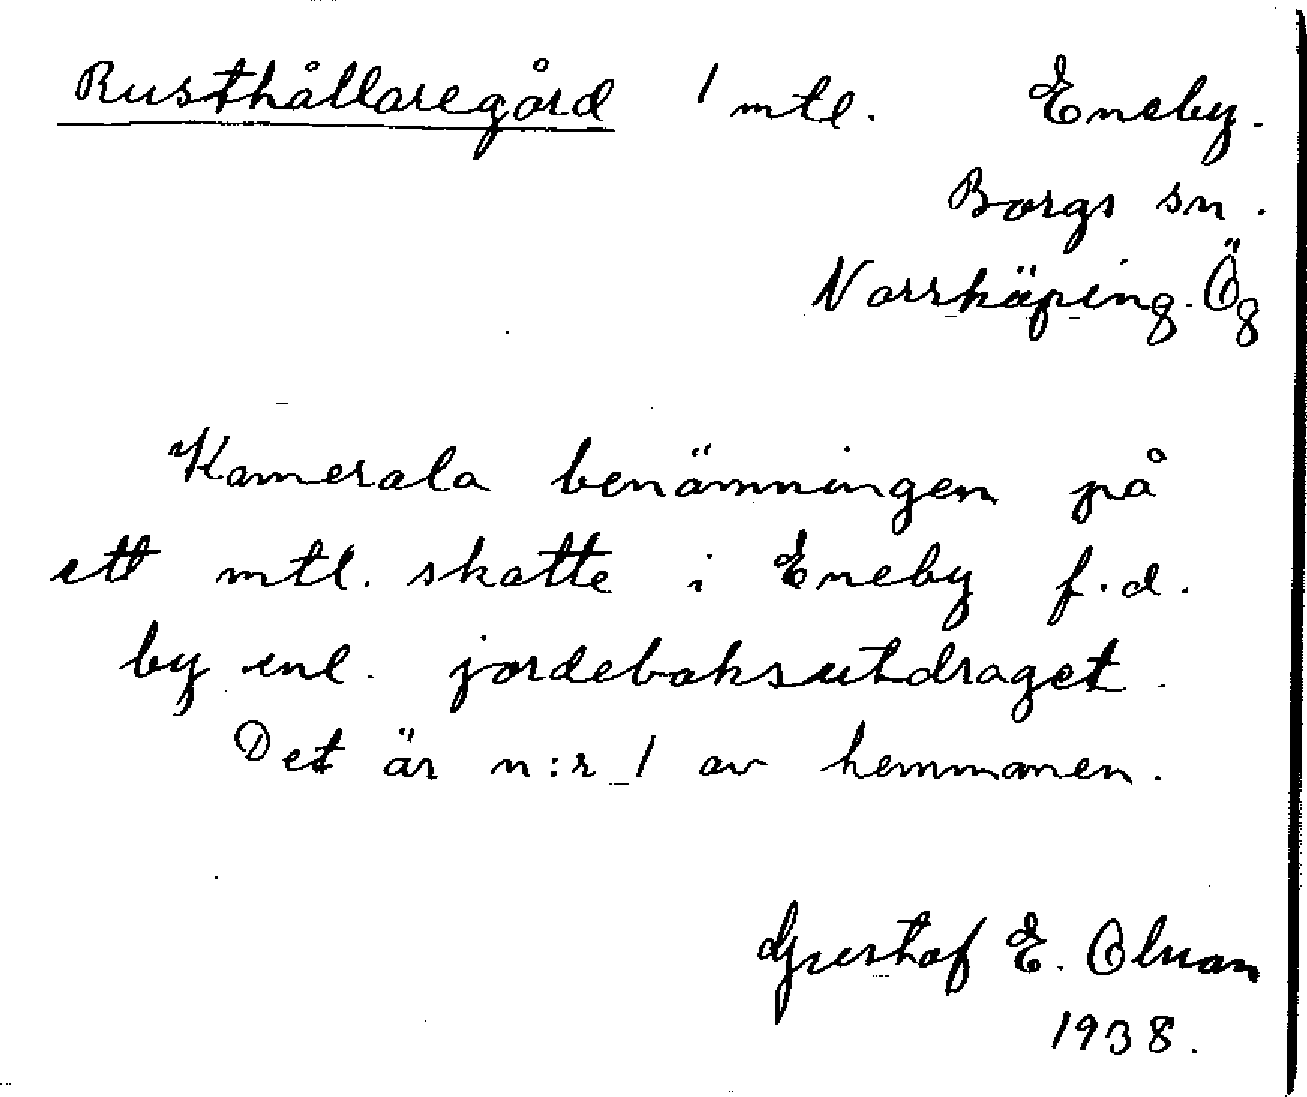 Rusthållaregård 1 mtl. Eneby.
Borgs sn.
Norrköping. Ög
Kamerala benämningen på
ett mtl. skatte i Eneby f.d.
by enl. jordeboksutdraget.
Det är n:r 1 av hemmanen.
Gustaf E. Olsson
1938.